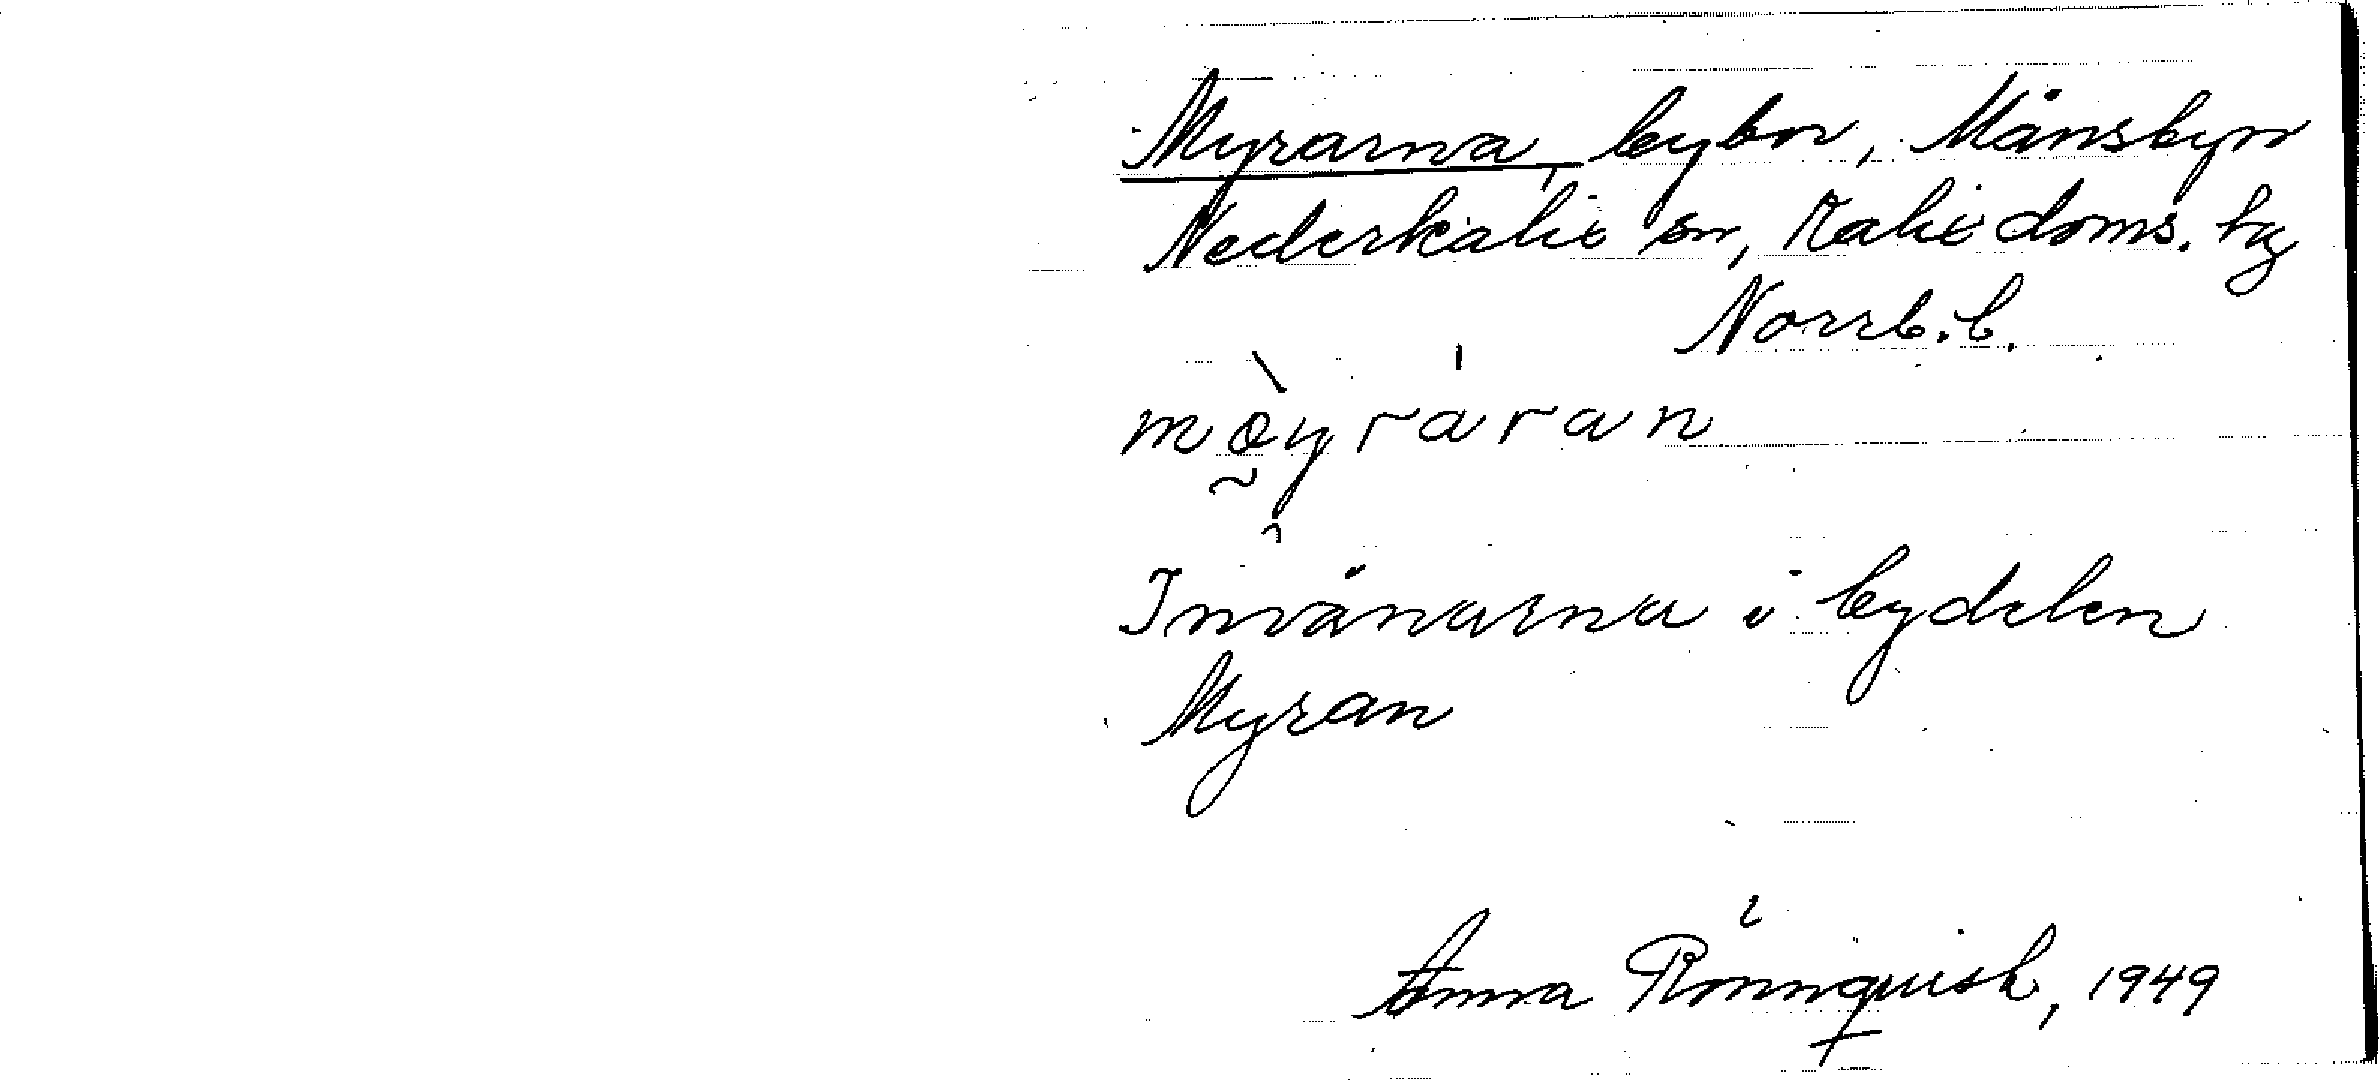 Myrarna, bybor, Månsbyn
Nederkalix sn, Kalix doms. tg
Norrb. l.
mø̀yráran
Invånarna i bydelen
Myran
Anna Rönnquist, 1949